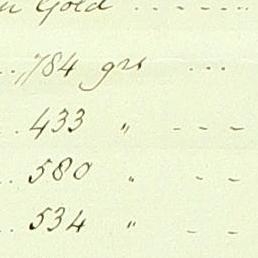 Gold - - - - -
.. 784 grs ...
.. 433 " - - -
.. 580 " - -
.. 534 " - -